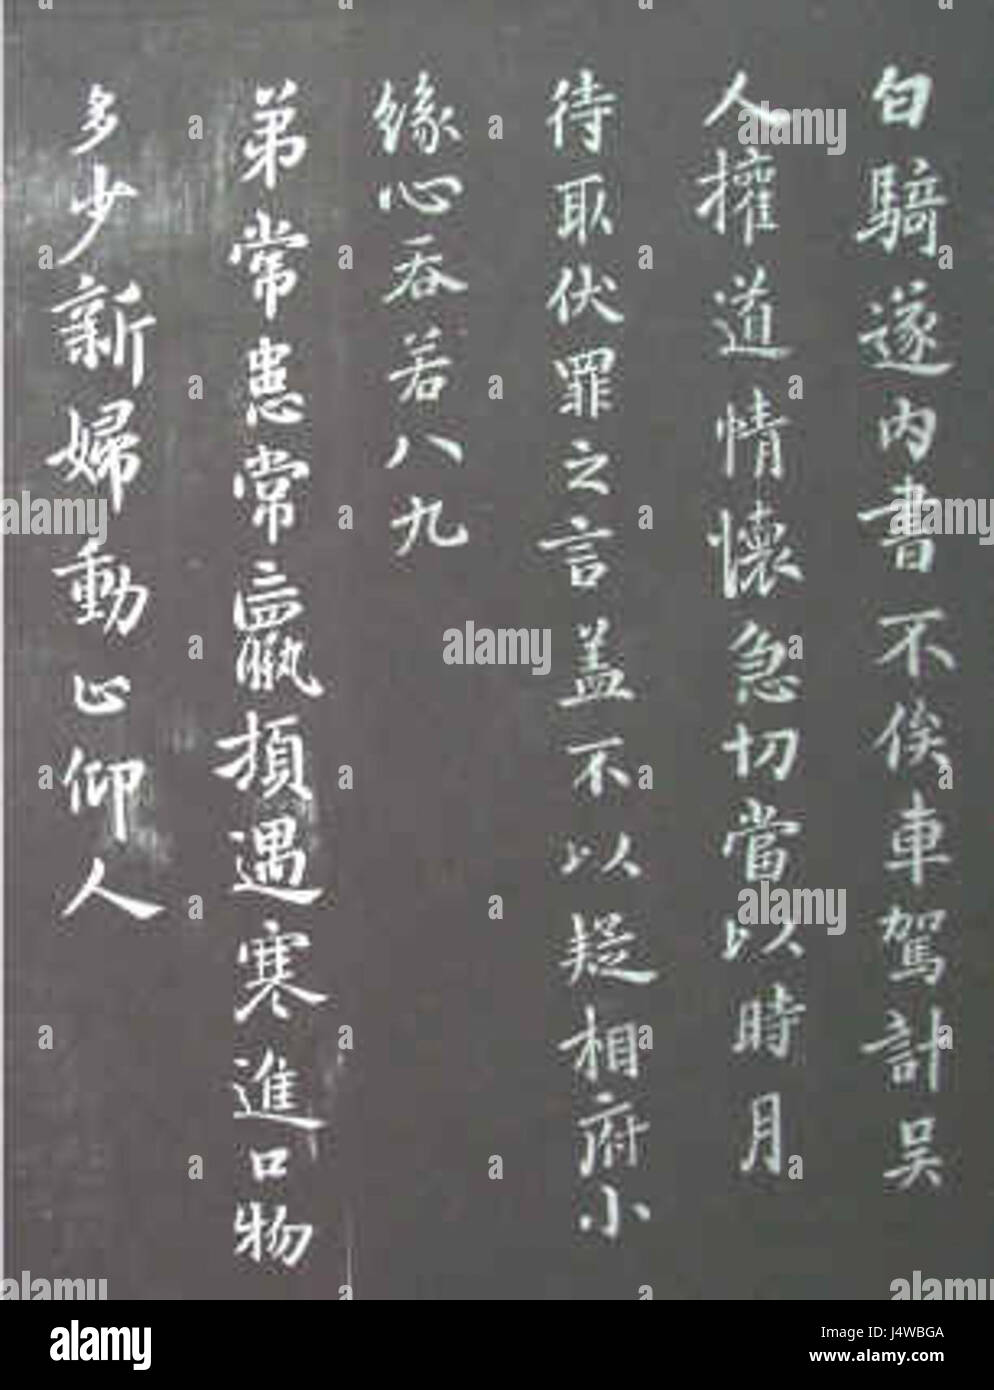 白騎遂内書不俟車駕計吴
人擁道情懷急切當以時月
待取伏罪之言盖不以疑相府小
緣心吞若八九
弟常患常羸頓遇寒進口物
多少新婦動止仰人
alamy
J4WBGA
www.alamy.com